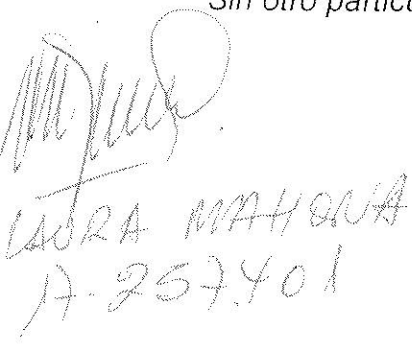 Sin otro particu
LAURA MAHONA
17.257.401